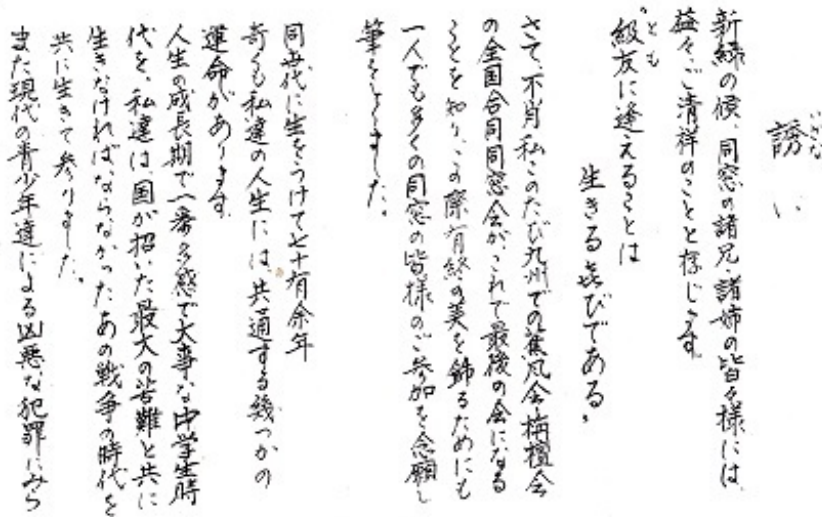 誘い
いざな
新緑の候、同窓の諸兄・諸姉の皆々様には、
益々、ご清祥のことと存じます。
とも
“級友に逢えることは
生きる喜びである”
さて、不肖私、このたび九州での蕉風会・栴檀会
の全国合同同窓会が、これで最後の会になる
ことを知り、この際有終の美を飾るためにも
一人でも多くの同窓の皆様のご参加を念願し
筆をとりました。
同世代に生をうけて七十有余年
奇くも私達の人生には、共通する幾つかの
運命があります。
人生の成長期で一番多感で大事な中学生時
代を、私達は、国が招いた最大の苦難と共に
生きなければならなかったあの戦争の時代を
共に生きて参りました。
また現代の青少年達による凶悪な犯罪にみら